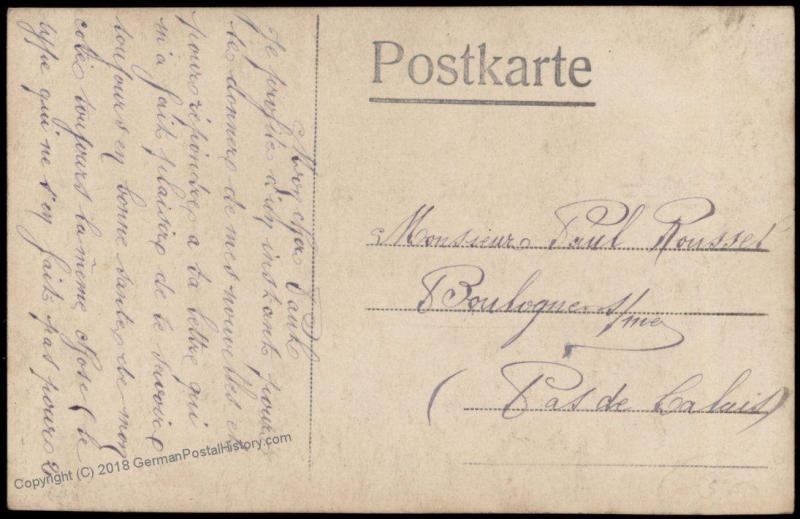 Postkarte
Mon cher Paul
Je profite d'un instant pour
te donner de mes nouvelles et
pour répondre a ta lettre qui
m'a fait plaisire de te savoire
toujours en bonne santée de mon
coté toujours la même chose le
type qui ne s'en fait pas pour 2
Monsieur Paul Rousset
Boulogne s/mer
(Pas de Calais)
Copyright (C) 2018 GermanPostalHistory.com